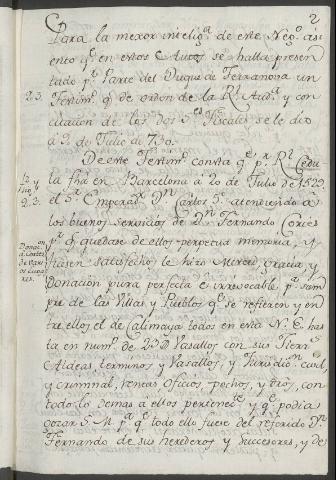 2
Para la mexor intelig.ª de este Neg.º asi
ento q.e en estos Autos se halla presen
tado p.r parte del Duque de Terranova un
23. Testim.º q.e de orden de la R.l Aud.ª y con
citacion de los dos S.res Fiscales se le dio
à 2 de Julio de 730.
De este Testim.º consta q.e p.r R.l Cedu
la fha en Barcelona à 20 de Julio de 1529
23. el S.r Emperad.r D.n Carlos 5.º atendiendo a
los buenos servicios de D.n Fernando Cortes
p.r q.e quedase de ellos perpetua memoria, y
Donac.on
à Cortes
de varios
Lugares.
fuesen satisfecho le hizo Merced, gracia y
Donación pura perfecta è irrevocable p.ª sam
pre de las Villas y Pueblos q.e se refieren y en
tre ellos el de Calimaya todos en esta N. E. has
ta en num.º de 23 D Vasallos con sus Tierr.s
Aldeas, terminos y Vasallos, y Jurisdic.on civil,
y criminal, rentas oficios, pechos, y dros, con
todo lo demas à ellos pertenec.te y q.e podia
gozar S. M. p.ª q.e todo ello fuese del referido D.n
Fernando de sus herederos y succesores, y de